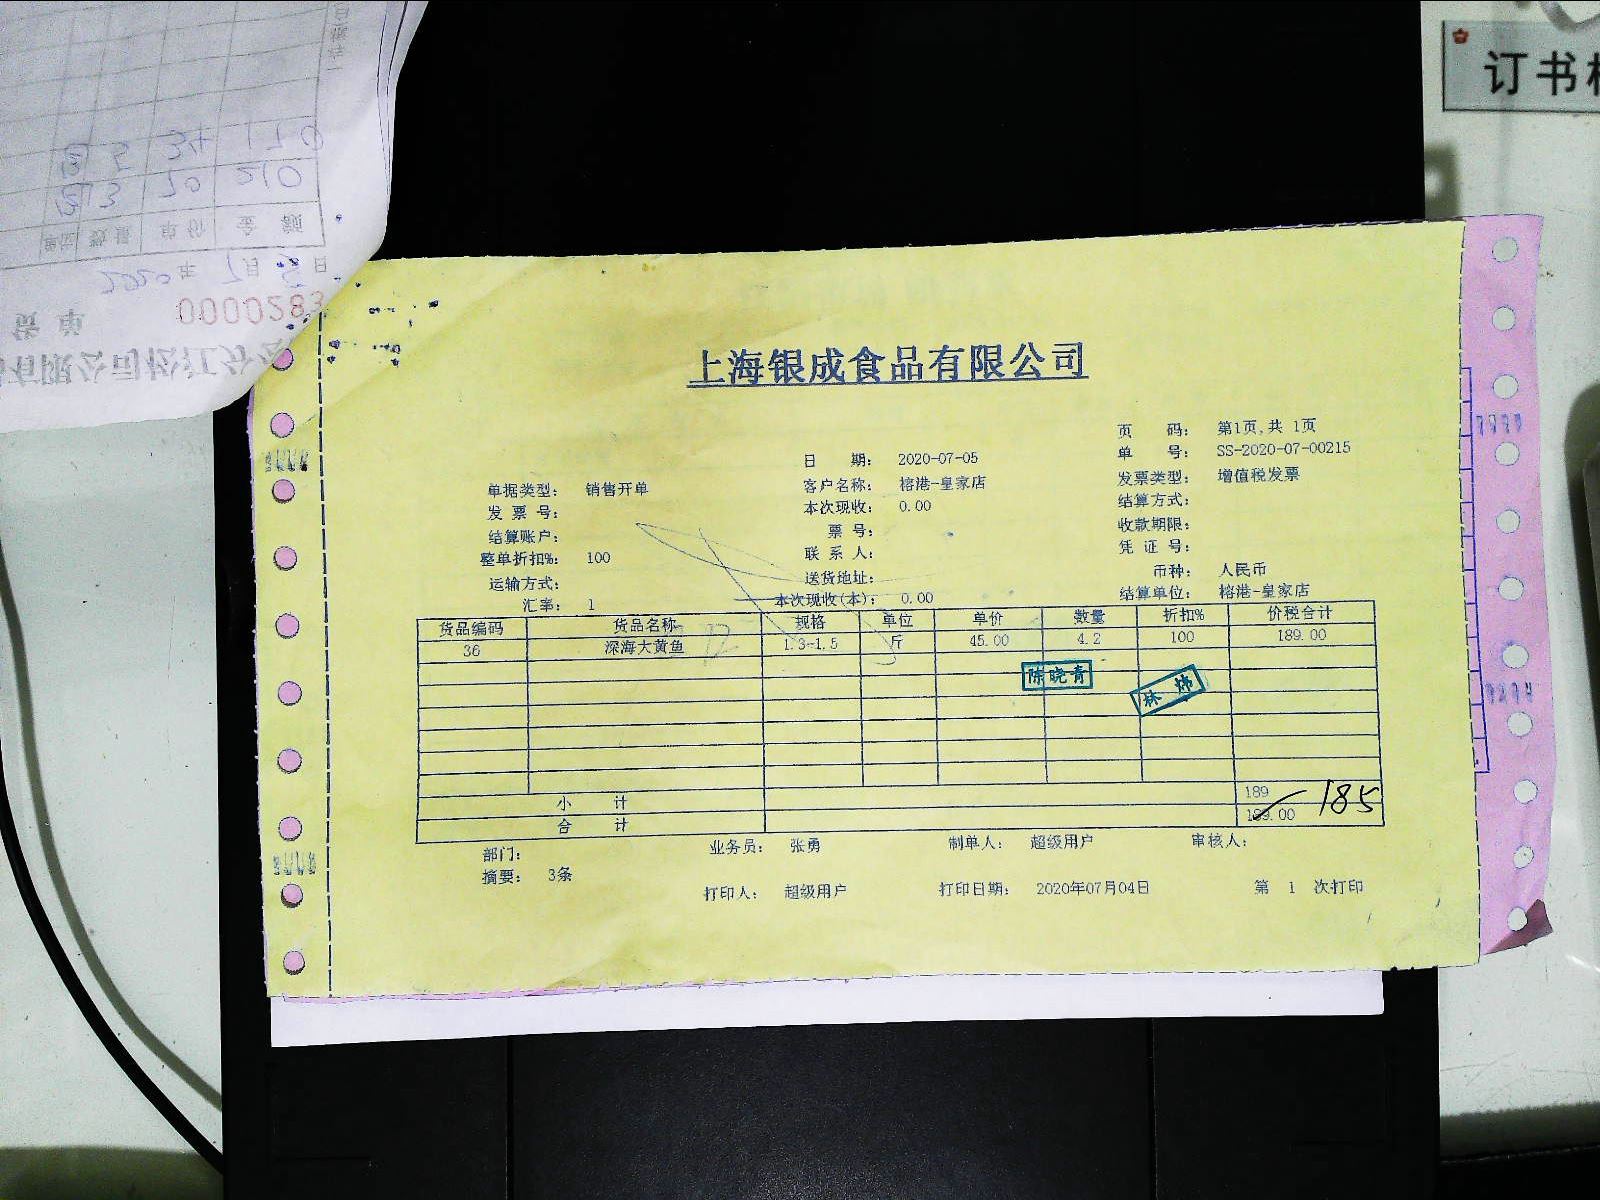 订书
170
34
5
210
70
3
金额
单价
数量
单位
2020年7月5日
0000283
货单
有限公司松江分公
上海银成食品有限公司
页码： 第1页,共 1页
单号： SS-2020-07-00215
日期： 2020-07-05
发票类型： 增值税发票
单据类型： 销售开单
客户名称： 榕港-皇家店
结算方式：
发票号：
本次现收： 0.00
收款期限：
结算账户：
票号：
凭证号：
整单折扣%： 100
联系人：
币种： 人民币
运输方式：
送货地址：
结算单位： 榕港-皇家店
汇率： 1
本次现收(本)： 0.00
货品编码 货品名称 规格 单位 单价 数量 折扣% 价税合计
36 深海大黄鱼 1.3-1.5 斤 45.00 4.2 100 189.00
陈晓青
林炜
小计 189
185
合计 189.00
部门： 业务员： 张勇 制单人： 超级用户 审核人：
摘要： 3条
打印人： 超级用户 打印日期： 2020年07月04日 第 1 次打印